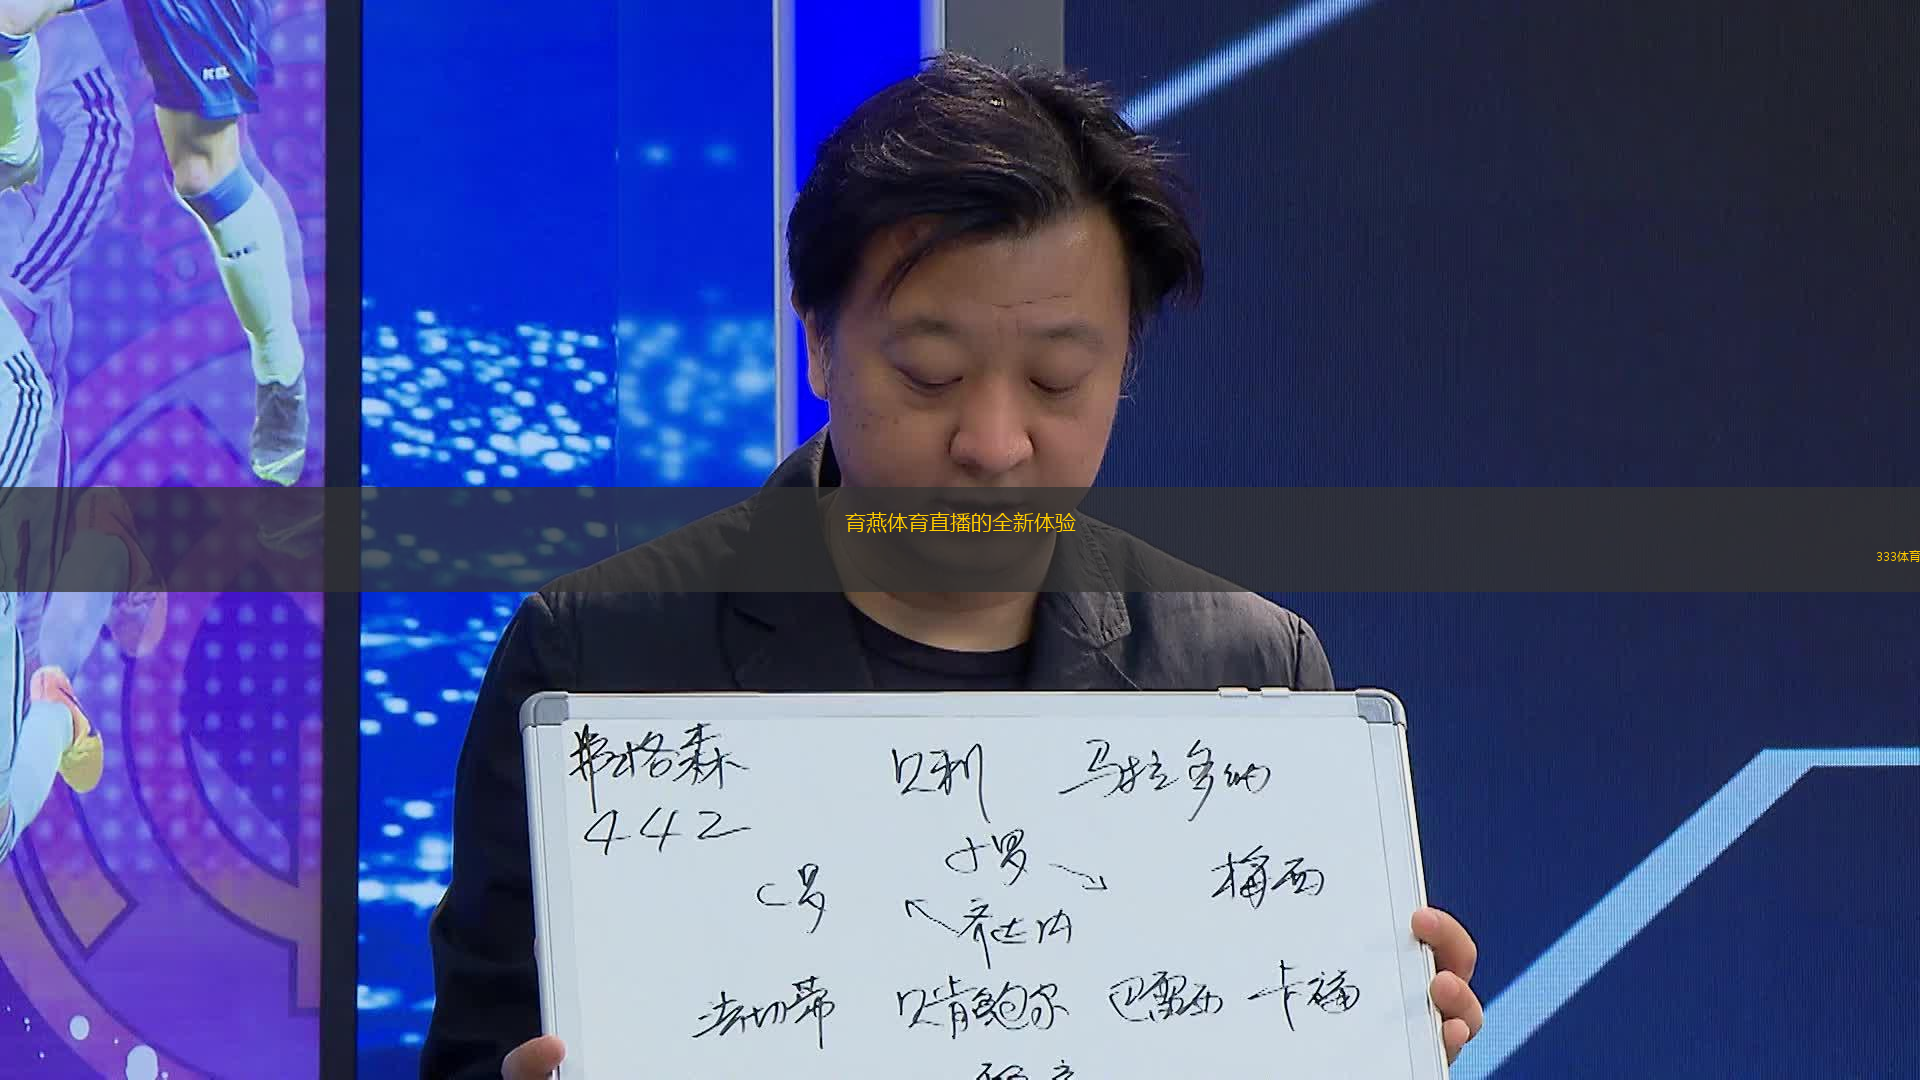 KEL
育燕体育直播的全新体验
333体育
弗格森 贝利 马拉多纳
442
小罗
C罗 梅西
齐达内
法切蒂 贝肯鲍尔 巴雷西 卡福